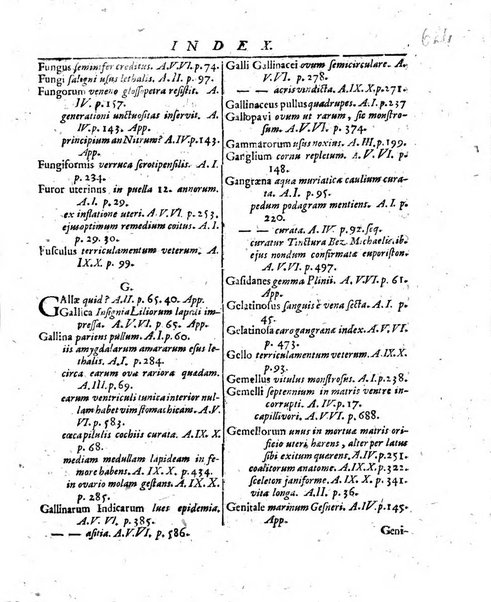 INDEX.
Fungus semi infer creditus. A.V.VI. p. 74.
Fungi saligni usus lethalis. A.II. p. 97.
Fungorum veneno glossopetra resistit. A.
IV. p. 157.
generationi unctuositas inservit. A.
IV. p. 143. App.
principium an Nitrum? A.IV. p. 143.
App.
Fungiformis verruca scrotipensilis. A.I.
p. 234.
Furor uterinus in puella 12. annorum.
A.I. p. 29.
ex inflatione uteri. A.V.VI. p. 253.
ejus optimum remedium coitus. A.I.
p. 29. 30.
Fusculus terriculamentum veterum. A.
IX.X. p. 99.
G.
GAllæ quid? A.II. p. 65. 40. App.
Gallica Insignia Liliorum lapidi im-
pressa. A.V.VI. p. 65. App.
Gallina pariens pullum. A.I. p. 60.
iis amygdalarum amararum esus le-
thalis. A.I. p. 284.
circa earum ova rariora quædam.
A.III. p. 69.
earum ventriculi tunica interior nul-
lam habet vim stomachicam. A.V.
VI. p. 583.
cæcapilulis cochiis curata. A.IX.X.
p. 68.
mediam medullam lapideam in fe-
more habens. A.IX.X. p. 434.
in ovario molam gestans. A.IX.X.
p. 285.
Gallinarum Indicarum lues epidemia.
A.V. VI. p. 385.
— — asitia. A.V.VI. p. 586.
Galli Gallinacei ovum semicirculare. A.
V.VI. p. 278.
— — acris vindicta. A.IX.X. p. 271.
Gallinaceus pullus quadrupes. A.I. p. 237
Gallopavi ovum ut rarum, sic monstro-
sum. A.V.VI. p. 374.
Gammarorum usus noxius. A.III. p. 199.
Garglium cornu repletum. A.V.VI. p.
148.
Gangræna aqua muriatica caulium cura-
ta. A.I. p. 95.
pedum podagram mentiens. A.I. p.
220.
— — curata. A.IV. p. 92. seq.
curatur Tinctura Bez. Michaelis. ib.
ejus nondum confirmatæ euporiston.
A.V.VI. p. 497.
Gasidanes gemma Plinii. A.V.VI. p. 61.
App.
Gelatinosus sanguis è vena secta. A.I. p.
45.
Gelatinosa caro gangrænæ index. A.V.VI.
p. 473.
Gello terriculamentum veterum. A.IX.X.
p. 93.
Gemellus vitulus monstrosus. A.I. p. 238.
Gemelli septennium in matris ventre in-
corrupti. A.IV. p. 17.
capillivori. A.V.VI. p. 688.
Gemellorum unus in mortua matris ori-
ficio uteri hærens, alter per latus
sibi exitum quærens. A.IX.X. p. 251.
coalitorum anatome. A.IX.X. p. 322.
sceleton janiforme. A.IX.X. p. 341.
vita longa. A.II. p. 36.
Genitale marinum Gesneri. A.IV. p. 145.
App.
Geni-